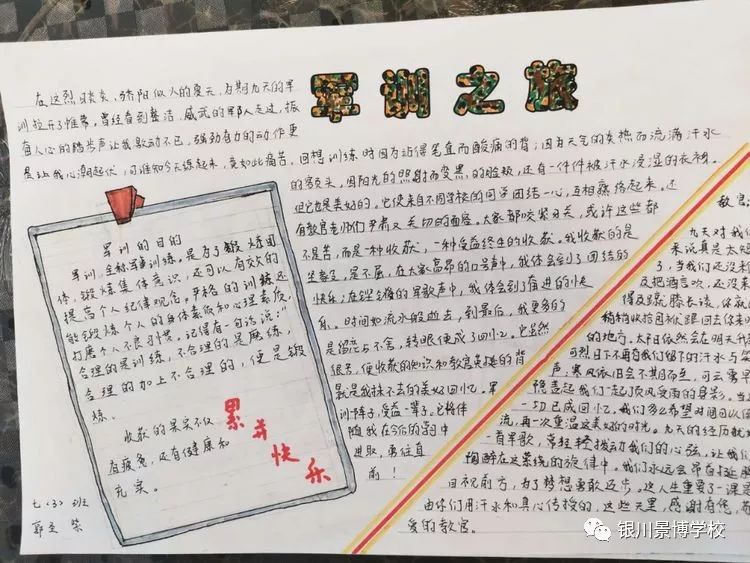 军训之旅
在这烈日炎炎、骄阳似火的夏天,为期九天的军
训拉开了帷幕。曾经看到整洁、威武的军人走过,振
奋人心的踏步声让我歆动不已,强劲有力的动作更
是让我心潮起伏,可谁知今天练起来,竟如此痛苦。回想训练时因为站得笔直而酸痛的背;因为天气的炎热而流满汗水
的额头,因阳光的照射而变黑的脸颊,还有一件件被汗水浸湿的衣裳。
但它也是美好的,它使来自不同学校的同学团结一心,互相熟络起来。还
有教官老师们严肃又关切的面容。大家都咬紧牙关,或许这些都
不是苦,而是一种收获,一种受益终生的收获。我收获的是
是不屈,在大家高昂的口号声中,我体会到了团结的
快乐;在嘹亮的军歌声中,我体会到了奋进的快
乐。时间如流水般逝去,到最后,我更多的
是留恋与不舍,转眼便成了回忆。它虽然
很苦,但收获的知识和教官
就是我抹不去的美好回忆。军
训一阵子,受益一辈子。它将伴
随我在今后的
进取,勇往直
前!
军训的目的
军训,全称军事训练,是为了锻炼团
体,锻炼集体意识,还可以有效的
提高个人纪律观念。严格的训练还
能锻炼个人的身体素质和心理素质,
打磨个人不良习惯。记得有一句话说:"
合理的是训练,不合理的是磨练,
合理的加上不合理的,便是锻
炼。
收获的果实不仅
有疲惫,还有健康和
充实。
累并快乐
七(3)班
教官
九天对我们
来说真是太短
了,当我们还没来
及把酒言欢,还没来
得及促膝长谈,你就
悄悄收拾包袱跟回去你来时
的地方,太阳依然会在明天升
可烈日下不再有我们留下的汗水与
声,寒风依旧会不期而至,可云雾里
掩盖起我们一起顶风受雨的身影。当
一切已成回忆,我们多么希望时间可以倒
流,再一次重温这美好的时光。九天的经历就
一首军歌,常轻轻拨动我们的心弦,让我们
陶醉在这萦绕的旋律中。我们永远会昂首挺胸
目视前方,为了梦想勇敢迈步。这人生重要一课
由你们用汗水和真心传授的,这些天里,感谢有您,
爱的教官。
银川景博学校